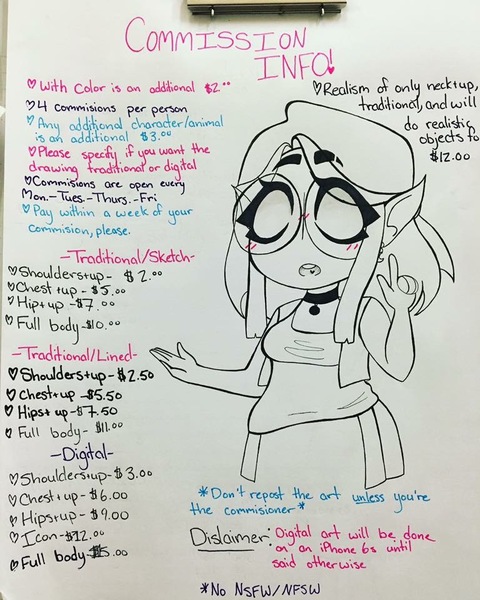 COMMISSION
INFO!
With Color is an additional $2.00
4 commisions per person
Any additional character/animal
is an additional $3.00
Please specify if you want the
drawing traditional or digital
Commisions are open every
Mon.-Tues.-Thurs.-Fri
Pay within a week of your
commision, please.
Realism of only neck+up,
traditional, and will
do realistic
objects fo
$12.00
-Traditional/Sketch-
Shoulders+up- $2.00
Chest+up-$5.00
Hip+up-$7.00
Full body-$10.00
-Traditional/Lined-
Shoulders+up-$2.50
Chest+up-$5.50
Hips+up-$7.50
Full body-$11.00
-Digital-
Shoulders+up-$3.00
Chest+up-$6.00
Hips+up-$9.00
Icon-$12.00
Full body-
*Don't repost the art unless you're
the commisioner*
Dislaimer: Digital art will be done
on an iPhone 6s until
said otherwise
*No NSFW/NFSW